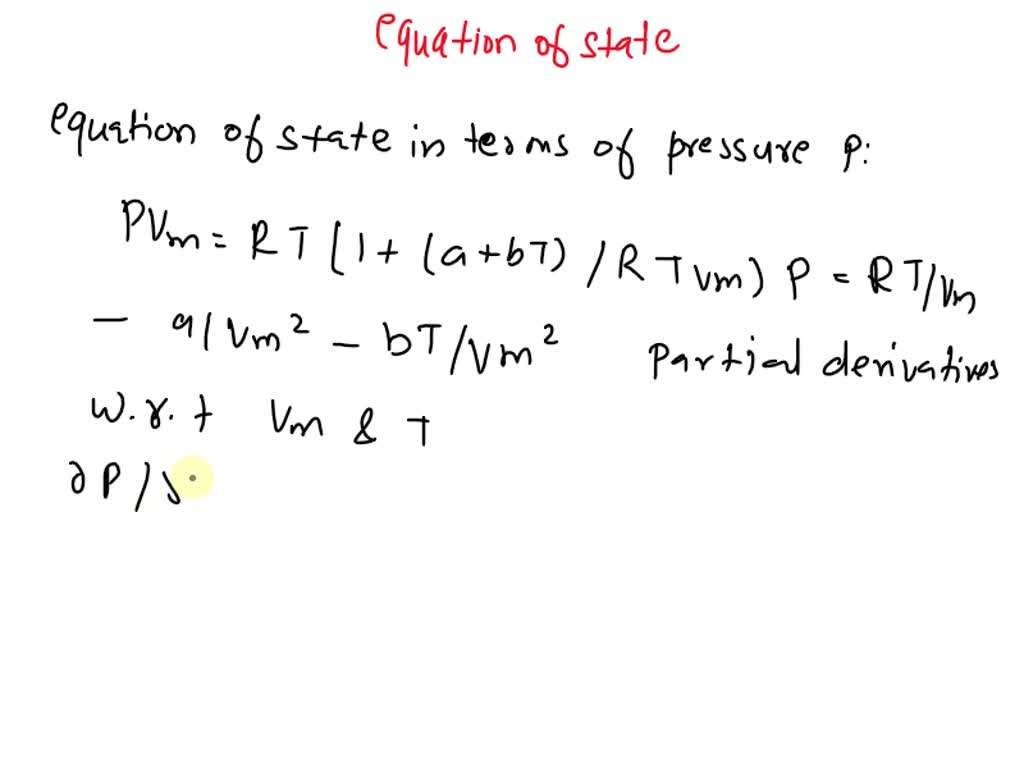 equation of state
equation of state in terms of pressure P:
PVm = RT (1 + (a+bT) / RTVm) P = RT/Vm
- a/Vm² - bT/Vm² Partial derivatives
w.r.t Vm & T
∂P/